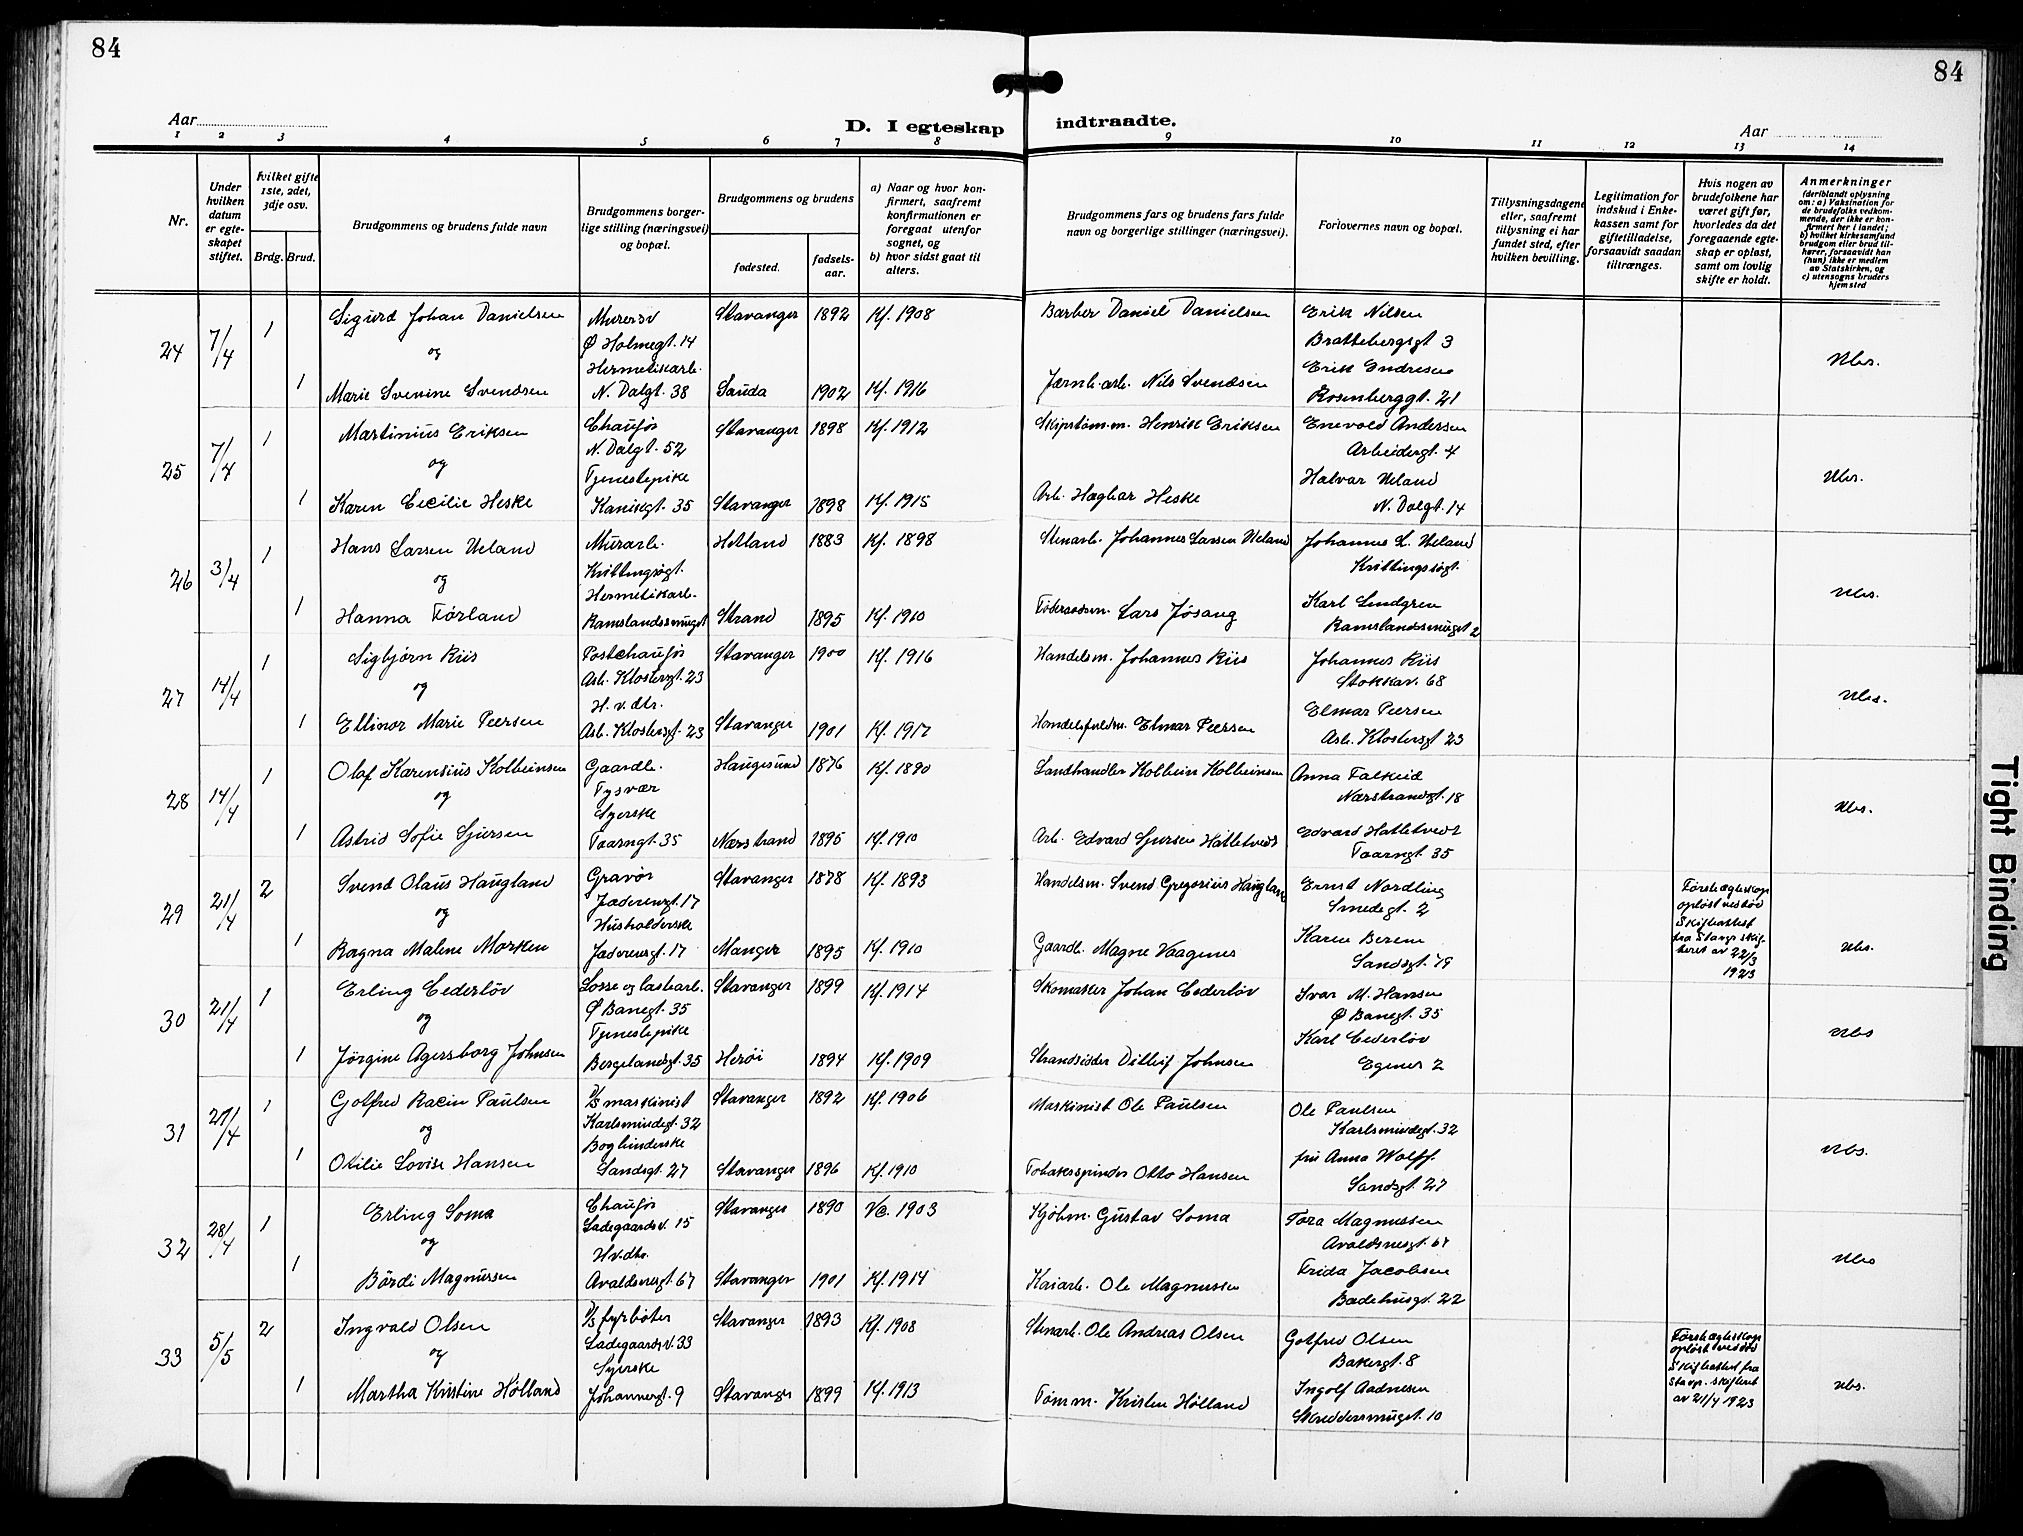 84
84
Aar
D. I egteskap indtraadte.
Aar
1 2 3 4 5 6 7 8 9 10 11 12 13 14
Nr.
Under hvilken datum er egteskapet stiftet.
hvilket gifte 1ste, 2det, 3dje osv.
Brdg. Brud.
Brudgommens og brudens fulde navn
Brudgommens borgerlige stilling (næringsvei) og bopæl.
Brudgommens og brudens
fødested.
fødselsaar.
a) Naar og hvor konfirmert, saafremt konfirmationen er foregaat utenfor sognet, og
b) hvor sidst gaat til alters.
Brudgommens fars og brudens fars fulde navn og borgerlige stillinger (næringsvei).
Forlovernes navn og bopæl.
Tillysningsdagene eller, saafremt tillysning ei har fundet sted, efter hvilken bevilling.
Legitimation for indskud i Enkekassen samt for giftetilladelse, forsaavidt saadan tiltrænges.
Hvis nogen av brudefolkene har været gift før, hvorledes da det foregaaende egteskap er opløst, samt om lovlig skifte er holdt.
Anmerkninger
(deriblandt oplysning om: a) Vaksination for de brudefolks vedkommende, der ikke er konfirmert her i landet; b) hvilket kirkesamfund brudgom eller brud tilhører, forsaavidt han (hun) ikke er medlem av Statskirken, og c) utensogns bruders hjemsted
24 7/4 1 Sigurd Johan Danielsen Murersv Ø Holmegt. 14 Stavanger 1892 Kf. 1908 Barber Daniel Danielsen Erik Nilsen Brattebergsgt 3
og
1 Marie Svenine Svendsen Hermetikarb. N. Dalgt. 38 Sauda 1902 Kf. 1916 Jernb. arb. Nils Svendsen Erik Endresen Rosenberggt. 21 Ubs.
25 7/4 1 Martinius Eriksen Chaufør N. Dalgt. 52 Stavanger 1898 Kf. 1912 Skipstøm.m. Henrik Eriksen Enevold Andersen Arbeidergt. 4
og
1 Karen Cecilie Heske Tjenestepike Kanikgt. 35 Stavanger 1898 Kf. 1915 Arb. Hagbar Heske Halvar Ueland N. Dalgt. 14 Ubs.
26 3/4 1 Hans Larsen Ueland Murarb. Kvittingsøgt. Hetland 1883 Kf. 1898 Stenarb. Johannes Larsen Ueland Johannes L. Ueland Kvittingsøgt.
og
1 Hanna Førland Hermetikarb. Ramslandssmuget Strand 1895 Kf. 1910 Lars Jøsang Karl Lindgren Ramslandsmuget 2 Ubs.
27 14/4 1 Sigbjørn Riis Postchaufør Asb. Klostergt. 23 Stavanger 1900 Kf. 1916 Handelsm. Johannes Riis Johannes Riis Stokkav. 68
og
1 Ellinor Marie Peersen H. v. dtr. Asb. Klostersgt. 23 Stavanger 1901 Kf. 1917 Handelsfuldm. Elmar Peersen Elmar Peersen Asb. Klostersgt 23 Ubs.
28 14/4 1 Olaf Karensius Kolbeinsen Gaardb. Tysvær Haugesund 1876 Kf. 1890 Landhandler Kolbein Kolbeinsen Anna Falkeid Nærstrandgt. 18
og
1 Astrid Sofie Sjursen Syerske Taarngt. 35 Nærstrand 1895 Kf. 1910 Arb. Edvard Sjursen Hatletvedt Edvard Hatletvedt Taarngt. 35 Ubs.
29 21/4 2 Svend Olaus Haugland Gravør Jæderengt. 17 Stavanger 1878 Kf. 1893 Handelsm. Svend Gregorius Haugland Ernst Nordling Smedegt. 2
og
1 Ragna Malene Morken Husholderske Jæderengt. 17 Manger 1895 Kf. 1910 Gaardb. Magne Vaagenes Karen Berem Sandsgt. 79 Første egteskap opløst ved død Skifteattest fra Stavgs skifteret av 22/3 1923 Ubs.
30 21/4 1 Erling Cederløv Losse og lastearb. Ø Banegt. 35 Stavanger 1899 Kf. 1914 Skomaker Johan Cederløv Ivar M. Hansen Ø Banegt. 35
og
1 Jørgine Agersborg Johnsen Tjenestepike Bergelandsgt. 35 Herøi 1894 Kf. 1909 Strandsidder Ditlef Johnsen Karl Cederløv Egenes 2 Ubs
31 27/4 1 Gotfred Racin Paulsen D/S maskinist Karlsmindegt. 32 Stavanger 1892 Kf. 1906 Maskinist Ole Paulsen Ole Paulsen Karlsmindegt. 32
og
1 Otilie Lovise Hansen Bogbinderske Sandsgt. 27 Stavanger 1896 Kf. 1910 Tobakkspinder Otto Hansen fru Anna Wolff. Sandsgt. 27 Ubs.
32 28/4 1 Erling Soma Chaufør Ladegaardsv. 15 Stavanger 1890 1903 Kjøbm. Gustav Soma Tora Magnussen Avaldsnesgt. 67
og
1 Bördi Magnussen H.v.dtr. Avaldsnesgt. 67 Stavanger 1901 Kf. 1914 Kaiarb. Ole Magnussen Frida Jacobsen Badehusgt. 22 Ubs
33 5/5 2 Ingvald Olsen D/S fyrbøter Ladegaardsv. 33 Stavanger 1893 Kf. 1908 Stenarb. Ole Andreas Olsen Gotfred Olsen Bakergt. 8
og
1 Martha Kristine Hølland Syerske Johannesgt. 9 Stavanger 1899 Kf. 1913 Tømm. Kristen Hølland Ingolf Aadnesen Skreddersmuget. 10 Første egteskap opløst ved død Skifteattest fra Stavgr. skifteret av 21/4 1923 Ubs.
Tight Binding